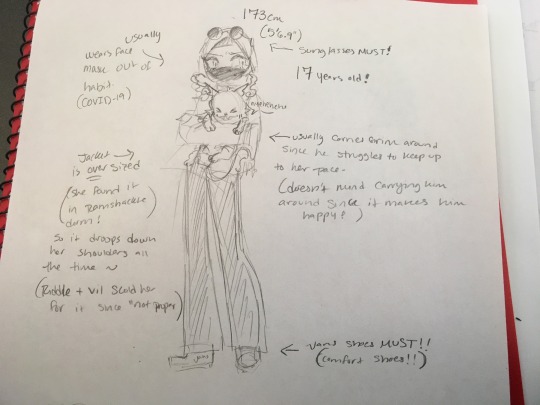 173cm
(5'6.9")
sunglasses MUST!
17 years old!
usually
wears face
mask out of
habit.
(COVID-19)
usually carries Grim around
since he struggles to keep up
to her pace.
(doesn't mind carrying him
around since it makes him
happy!)
Jacket
is oversized
(she found it
in Ramshackle
dorm!
So it droops down
her shoulders all
the time ~
(Riddle + Vil scold her
for it since "not proper)
vans
vans shoes MUST!!
(comfort shoes!!)